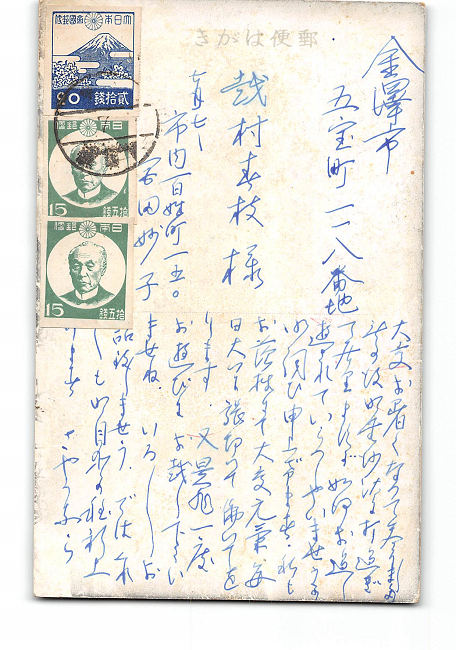 きがは便郵
便郵國帝本日大
20 錢拾貳
便郵 本日
15 錢五拾
便郵 本日
15 錢五拾
金澤市
五宝町一一八番地
越村春枝様
市内百姓町一五。
石田妙子
大変お暑くなって参りました
て居りますが如何お過し
遊されていらっしゃいませうか
お伺ひ申し上げます 私も
お蔭様にて大変元気毎
日大いに張切って働いてを
ります 又是非一度
お遊びにお越し下さい
ませね いろいろお
話致しませう ではくれ
祈り上
げます さやうなら